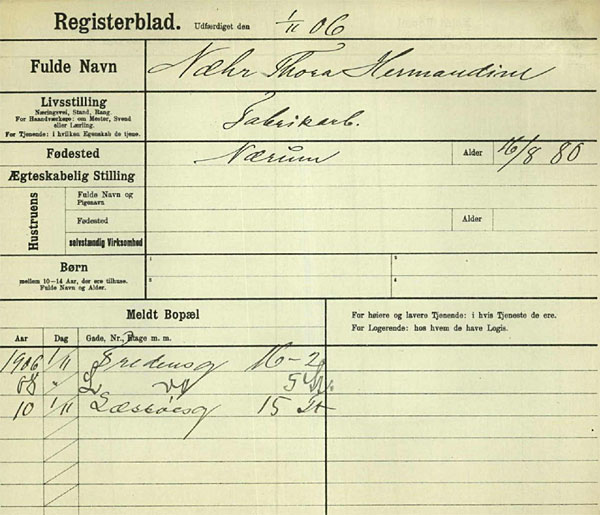 Registerblad. Udfærdiget den 1/11 06
Fulde Navn Næhr Thora Hermandine
Livsstilling
Næringsvei, Stand, Rang.
For Haandværkere: om Mester, Svend
eller Lærling.
For Tjenende: i hvilken Egenskab de tjene.
Fabrikarb.
Fødested Nærum Alder 16/8 80
Ægteskabelig Stilling
Hustruens
Fulde Navn og
Pigenavn
Fødested Alder
selvstændig Virksomhed
Børn
mellem 10-14 Aar, der ere tilhuse.
Fulde Navn og Alder.
1 3
2 4
Meldt Bopæl
For høiere og lavere Tjenende: i hvis Tjeneste de ere.
For Logerende: hos hvem de have Logis.
Aar Dag Gade, Nr., Etage m. m.
1906 1/11 Fredensg 16-2
08 "
10 1/11 Læssøesg 15 St